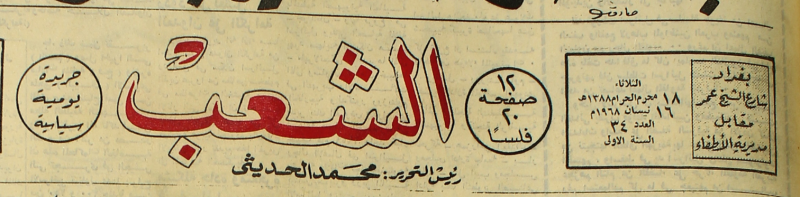 صادق
بغداد
شارع الشيخ عمر
مقابل
مديرية الأطفاء
الثلاثاء
١٨ محرم الحرام ١٣٨٨هـ
١٦ نيسان ١٩٦٨م
العدد ٣٤
السنة الاولى
١٢
صفحة
٢٠
فلسًا
الشعب
جريدة
يومية
سياسية
رئيس التحرير: محمد الحديثي